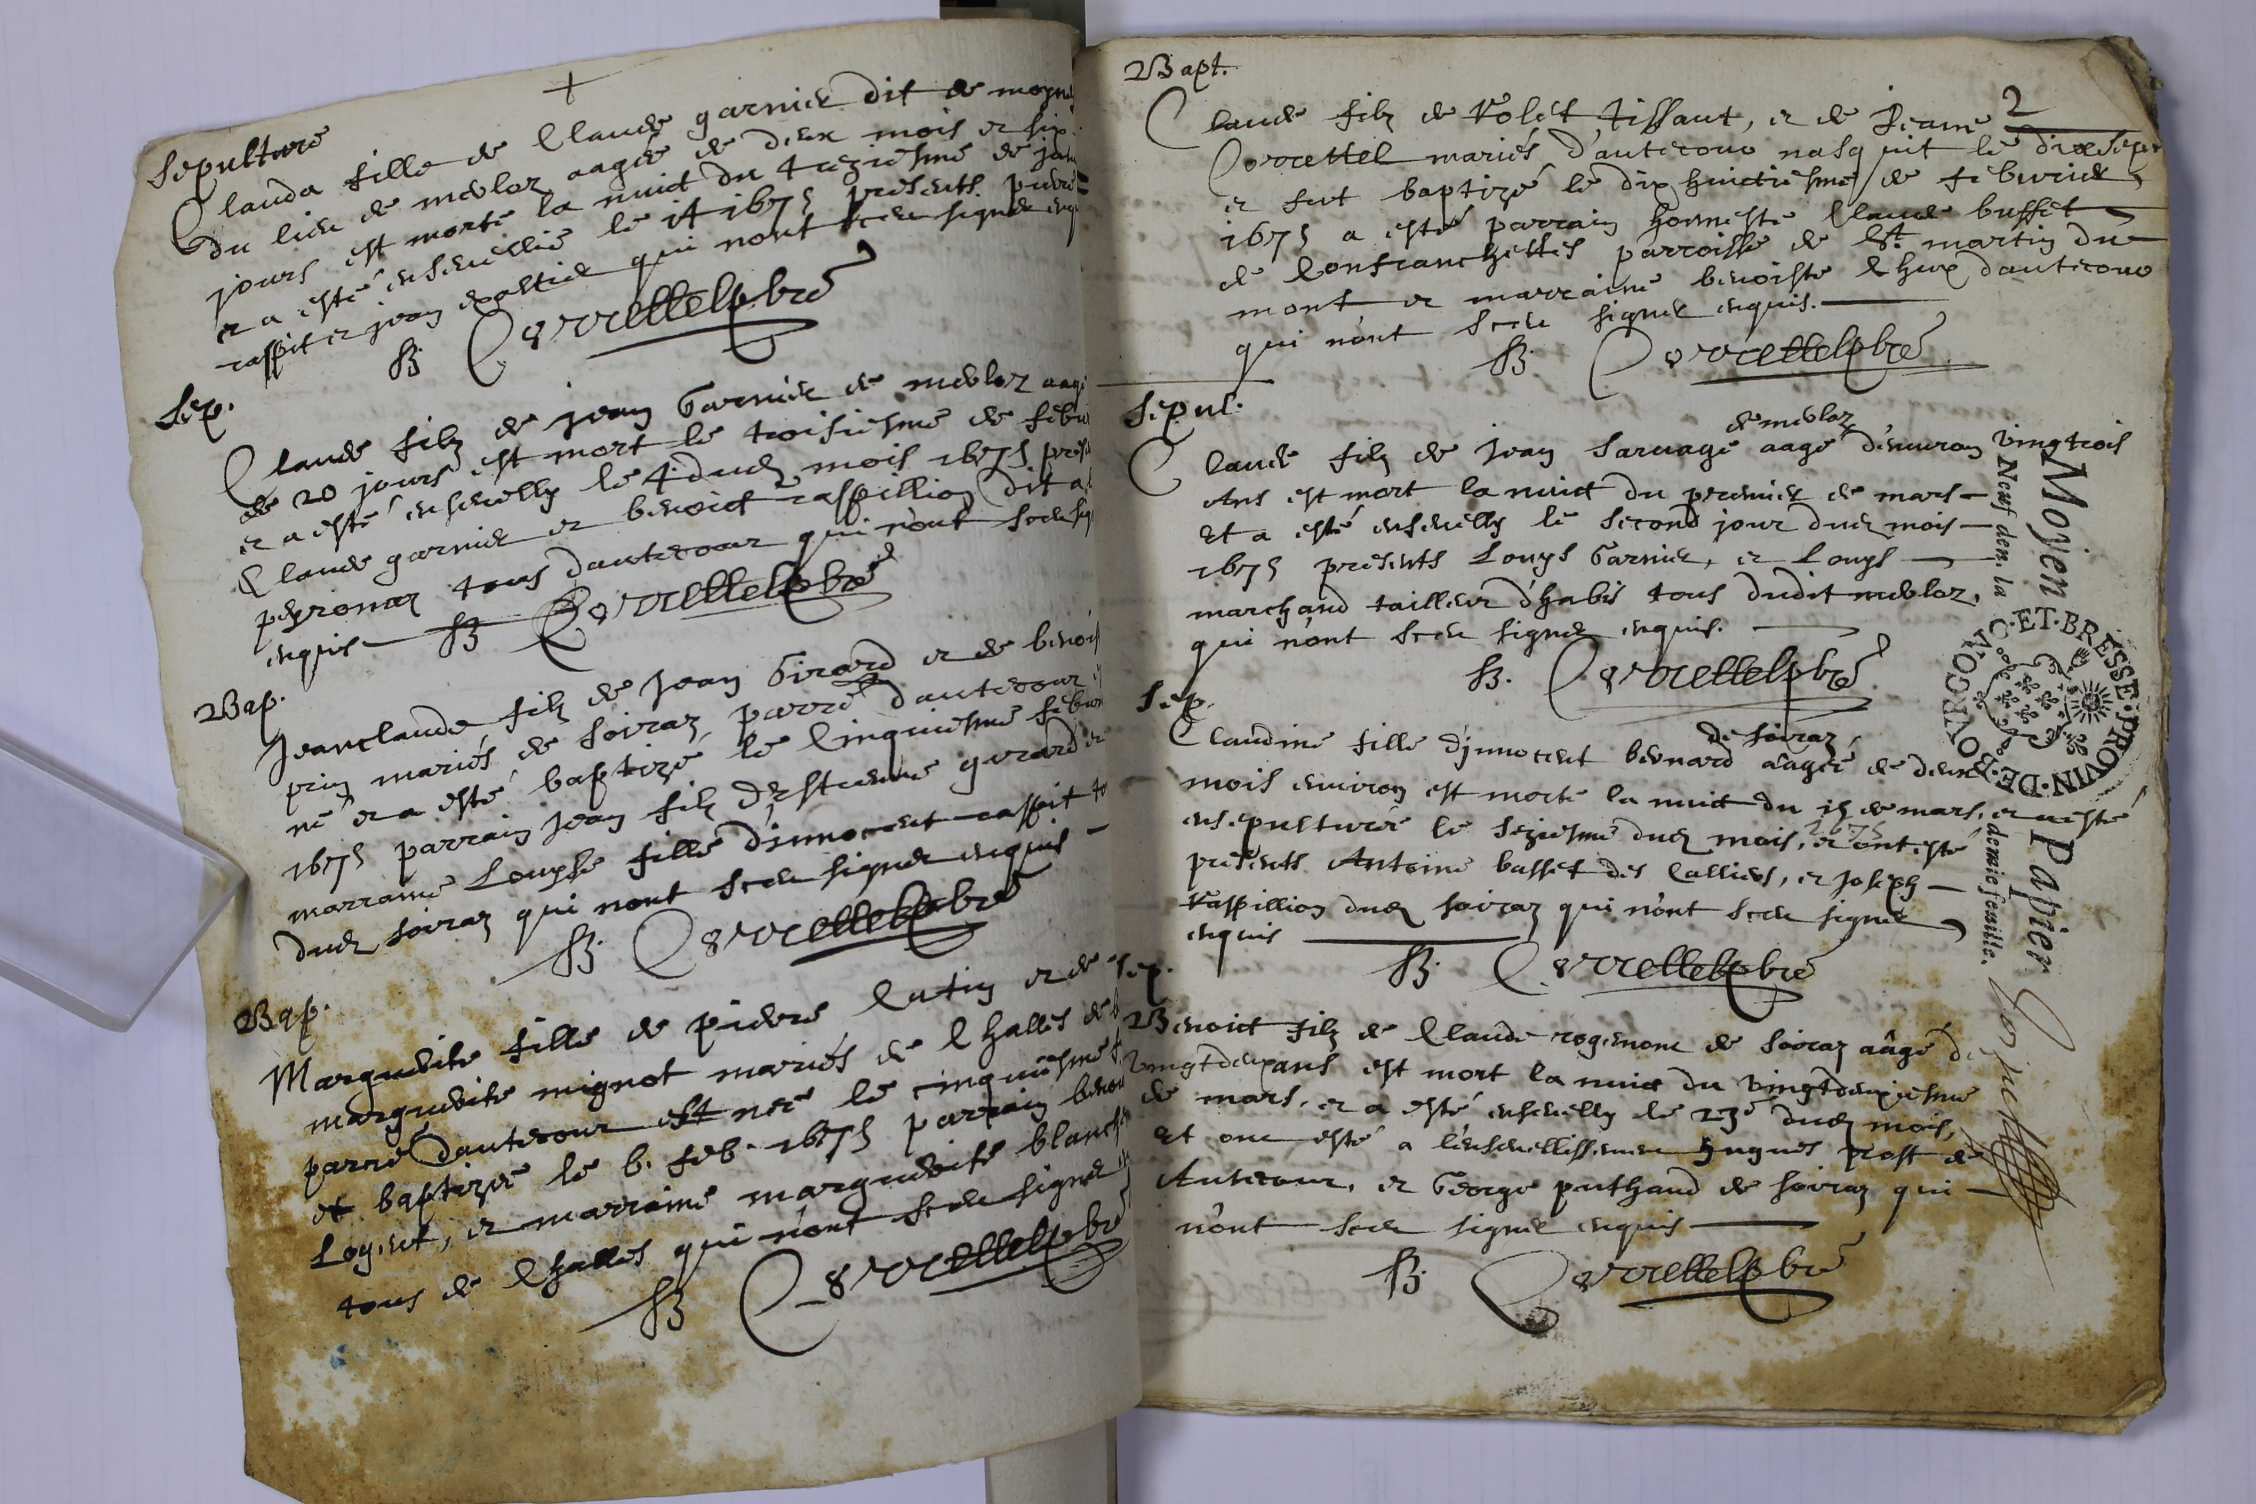 Sepulture
Clauda fille de Claude garnier dit de
du lieu de merloz aagée de deux mois et six
jours est morte la nuict du treziesme de
et a esté ensevellie le 14 1675 presents pierre
raspit et jean qui nont sceu signer
B. Corcellet pbre
Sep.
Claude filz de jean Garnier de merloz
de 20 jours est mort le troisiesme de
et a esté ensevelly le 4 dud mois 1675
Claude garnier et benoict raspillion dit
peyronaz tous dautecour qui n'ont sceu
enquis B Corcellet pbre
Bap.
Jeanclaude filz de Jean Girard et de
prin mariés de soiraz, parre dautecour
né et a esté baptizé le cinquiesme
1675 parrain jean filz d'estienne girard et
marraine Louyse fille d'innocent raspit
dud soiraz qui nont sceu signer enquis
B. Corcellet pbre
Bap.
Marguerite fille de pierre Catin et de
marguerite mignot mariés de Challes de
parre d'autecour est née le cinquiesme
et baptizée le 6. feb. 1675 parrain
Logent, et marraine marguerite
tous de Challes qui n'ont sceu signer
B Corcellet pbre
2
Bapt.
Claude filz de tissaut, et de Jeanne
Corcettel mariés d'autecour nasquit le
et fut baptizé le dixhuictiesme de feburier
1675 a esté parrain honneste Claude buffet
de Confranchettes parroisse de St. martin du
mont et marraine benoiste d'autecour
qui n'ont sceu signer enquis.
B. Corcellet pbre
Sepul.
de merloz
Claude filz de Jean Sarvage aagé d'environ vingtrois
Ans est mort la nuict du premier de mars
Et a esté ensevelly le second jour dud mois
1675 presents Louys Garnier, et Louys
marchand tailleur d'habis tous dudit merloz,
qui n'ont sceu signer enquis.
B. Corcellet pbre
Sep.
de soiraz,
Claudine fille d'jnnocent bernard aagée de deux
mois environ est morte la nuict du 15 de mars, et a esté
ensepulturée le seziesme dud mois, 1675 et ont esté
présents Antoine basset des Calliers, et Joseph
Raspillion dud soiraz qui n'ont sceu signer
enquis
B. Corcellet pbre
Sep.
Benoict filz de Claude de soiraz aâgé
vingtdeux ans est mort la nuict du vingtdeuxiesme
de mars, et a esté ensevelly le 23e dud mois,
Et ont esté a l'ensevellissement Hugues prost de
Autecour, et George puthaud de soiraz qui
n'ont sceu signer enquis
B. Corcellet pbre
Moyen Papier
Neuf den. la demie feuille.
PROVIN·DE·BOVRGO·ET·BRESSE